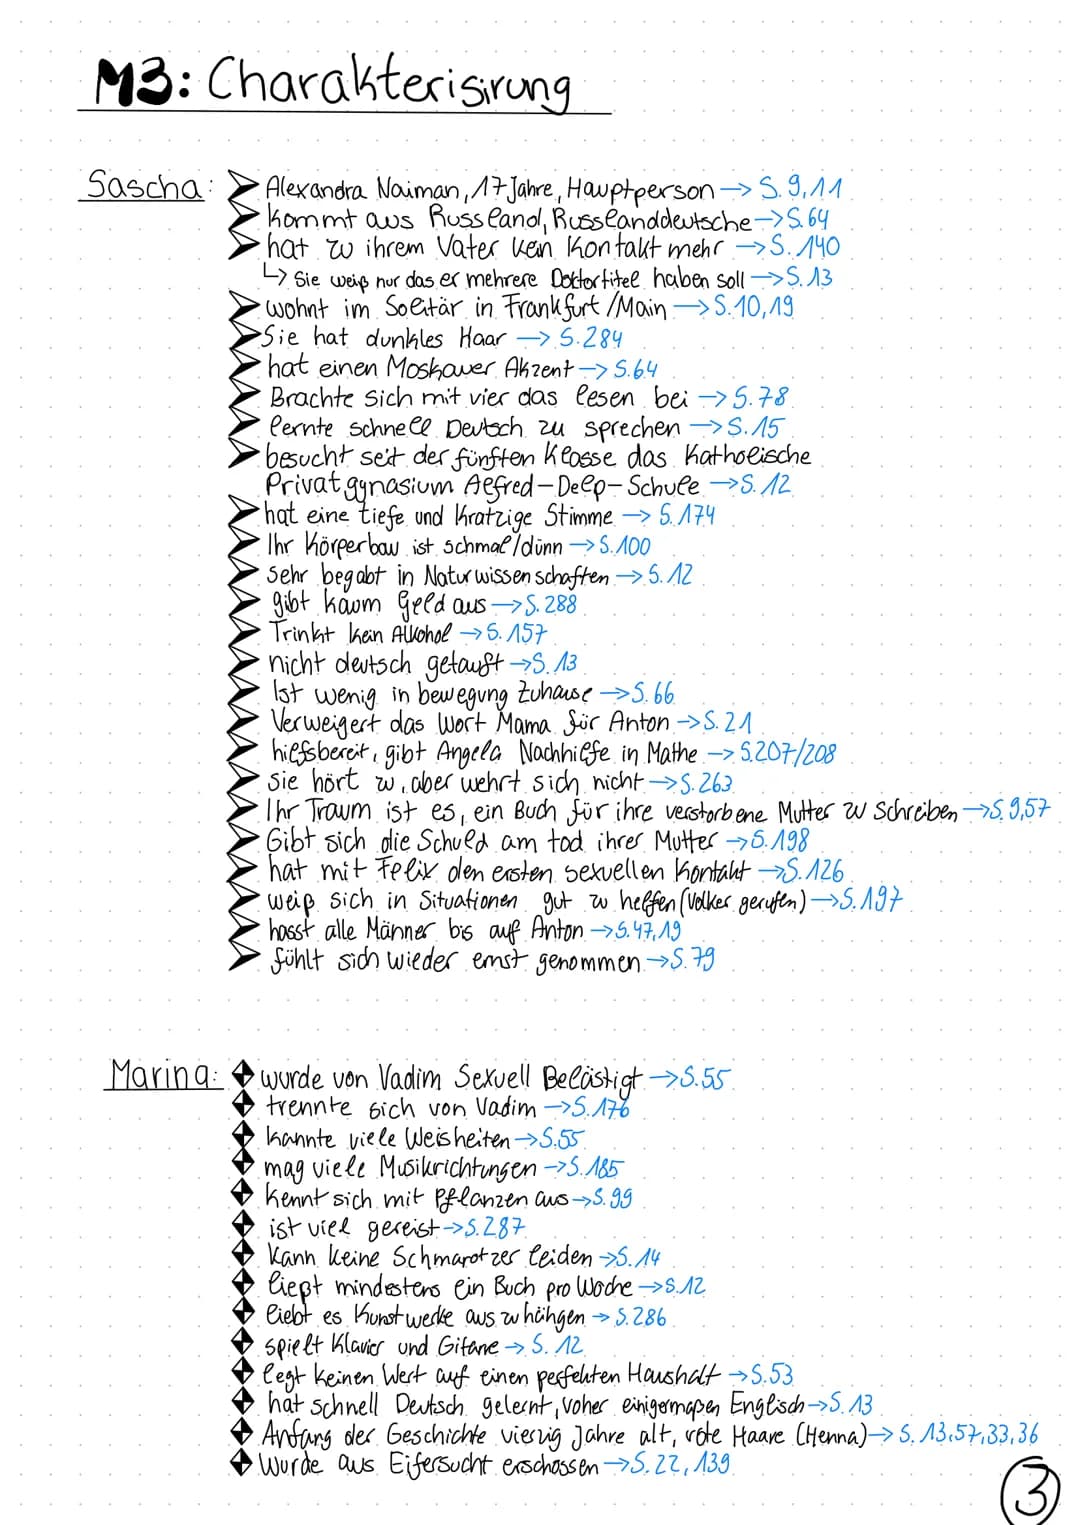 M3: Charakterisirung
Sascha: Alexandra Naiman, 17 Jahre, Hauptperson → S. 9, 11
kommt aus Russland, Russlanddeutsche → S. 64
hat zu ihrem Vater kein Kontakt mehr → S. 140
↳ Sie weiß nur das er mehrere Doktortitel haben soll → S. 13
wohnt im Solitär in Frankfurt/Main → S. 10, 19
Sie hat dunkles Haar → S. 284
hat einen Moskauer Akzent → S. 64
Brachte sich mit vier das lesen bei → S. 78
lernte schnell Deutsch zu sprechen → S. 15
besucht seit der fünften Klasse das Katholische
Privatgynasium Alfred-Delp-Schule → S. 12
hat eine tiefe und Kratzige Stimme → S. 174
Ihr Körperbau ist schmal/dünn → S. 100
sehr begabt in Naturwissenschaften → S. 12
gibt kaum Geld aus → S. 288
Trinkt kein Alkohol → S. 157
nicht deutsch getauft → S. 13
Ist wenig in bewegung Zuhause → S. 66
Verweigert das Wort Mama für Anton → S. 21
hilfsbereit, gibt Angela Nachhilfe in Mathe → S. 207/208
sie hört zu, aber wehrt sich nicht → S. 263
Ihr Traum ist es, ein Buch für ihre verstorbene Mutter zu Schreiben → S. 9, 57
Gibt sich die Schuld am tod ihrer Mutter → S. 198
hat mit Felix den ersten sexuellen Kontakt → S. 126
weiß sich in Situationen gut zu helfen (Volker gerufen) → S. 197
hasst alle Männer bis auf Anton → S. 47, 19
fühlt sich wieder ernst genommen → S. 79
Marina: wurde von Vadim Sexuell Belästigt → S. 55
trennte sich von Vadim → S. 176
kannte viele Weisheiten → S. 55
mag viele Musikrichtungen → S. 185
kennt sich mit Pflanzen aus → S. 99
ist viel gereist → S. 287
Kann keine Schmarotzer leiden → S. 14
ließt mindestens ein Buch pro Woche → S. 12
liebt es Kunstwerke aus zu hängen → S. 286
spielt Klavier und Gitarre → S. 12
legt keinen Wert auf einen perfekten Haushalt → S. 53
hat schnell Deutsch gelernt, voher einigermaßen Englisch → S. 13
Anfang der Geschichte vierzig Jahre alt, rote Haare (Henna) → S. 13, 57, 33, 36
Wurde aus Eifersucht erschossen → S. 22, 139
3